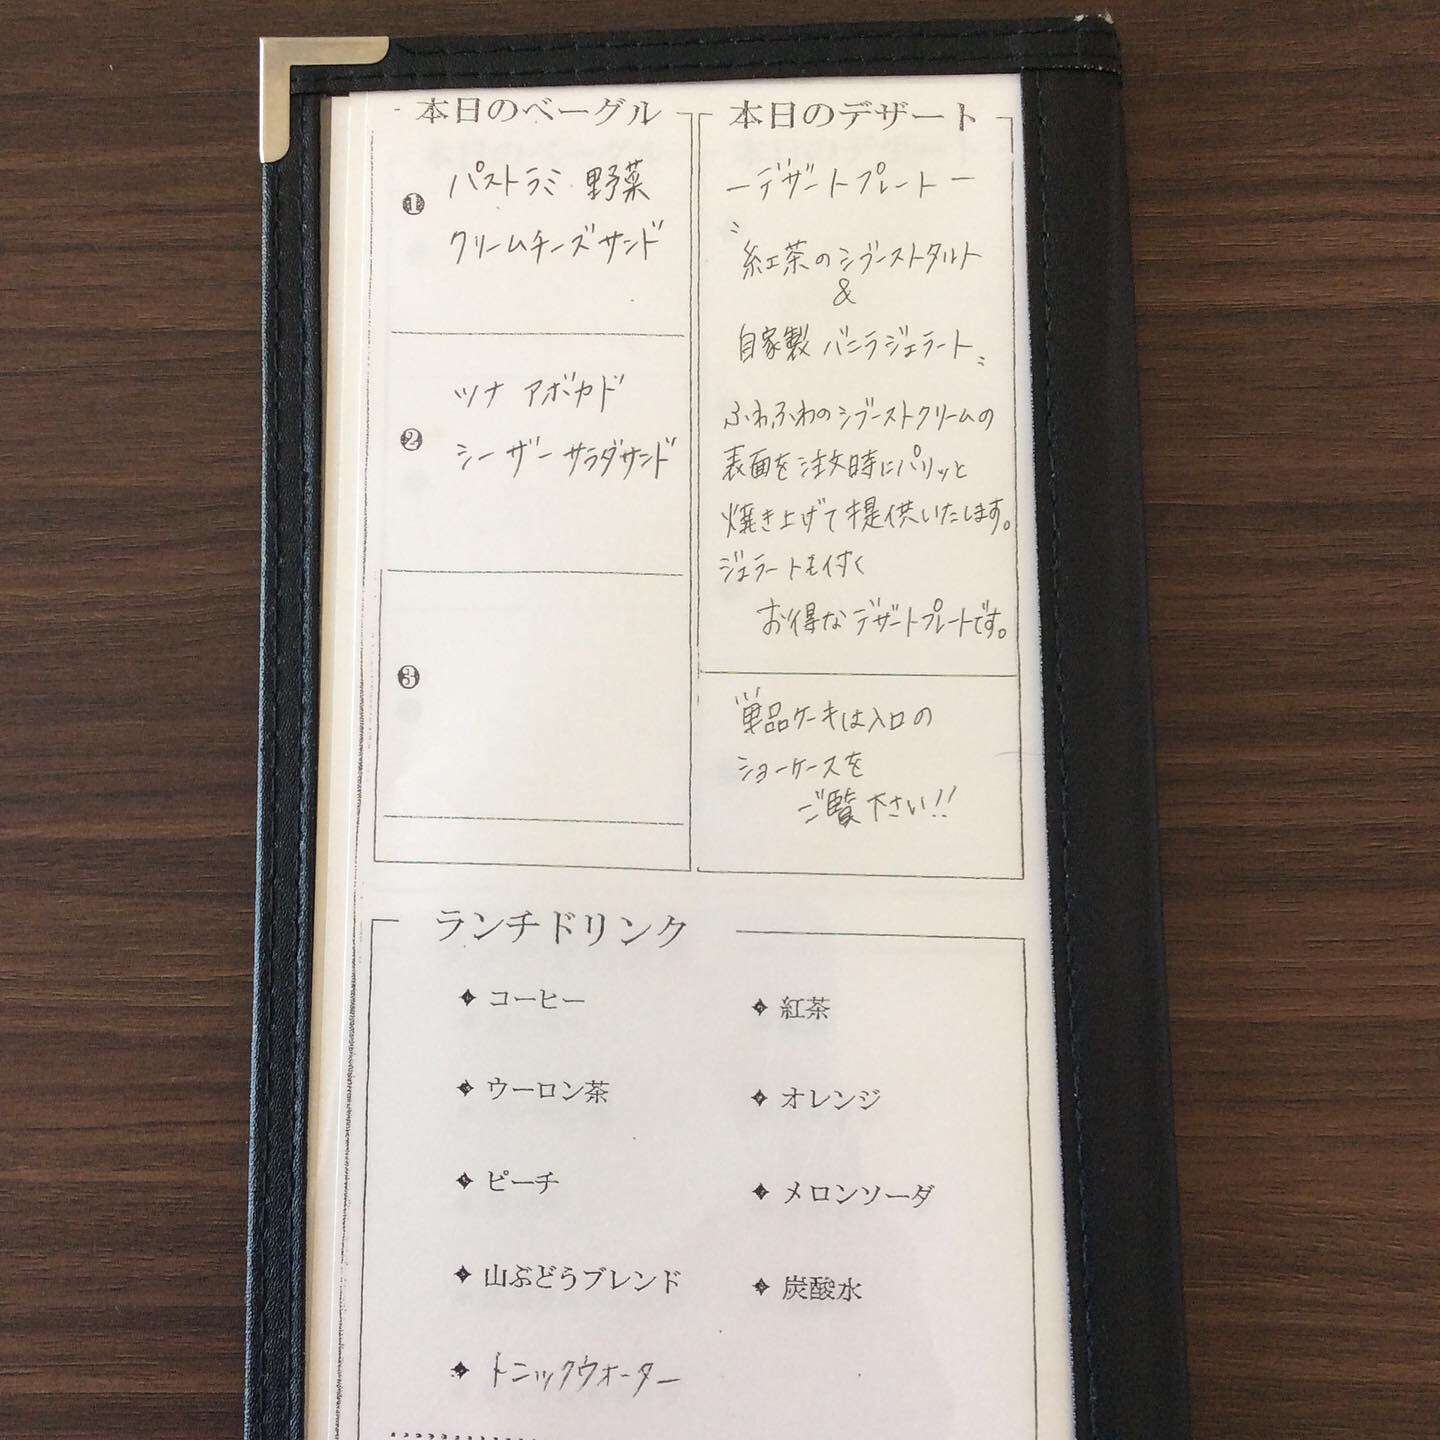 本日のベーグル
❶
パストラミ 野菜
クリームチーズサンド
❷
ツナ アボカド
シーザーサラダサンド
❸
本日のデザート
ーデザートプレートー
〝紅茶のシブーストタルト
&
自家製 バニラジェラート〟
ふわふわのシブーストクリームの
表面を注文時にパリッと
焼き上げて提供いたします。
ジェラートも付く
お得なデザートプレートです。
単品ケーキは入口の
ショーケースを
ご覧下さい!!
ランチドリンク
コーヒー
紅茶
ウーロン茶
オレンジ
ピーチ
メロンソーダ
山ぶどうブレンド
炭酸水
トニックウォーター